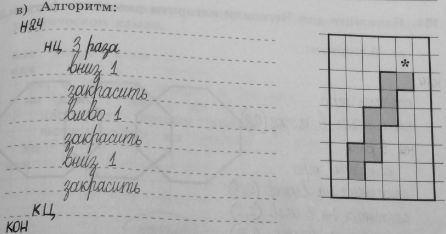 в) Алгоритм:
нач
нц 3 раза
вниз 1
закрасить
влево 1
закрасить
вниз 1
закрасить
кц
кон
*